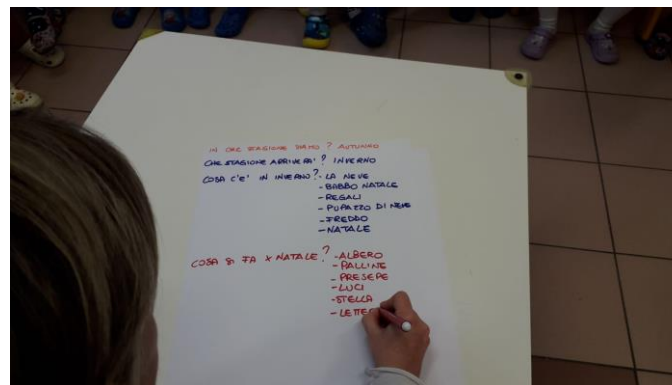 IN CHE STAGIONE SIAMO ? AUTUNNO
CHE STAGIONE ARRIVERA' ? INVERNO
COSA C'E' IN INVERNO ? - LA NEVE
- BABBO NATALE
- REGALI
- PUPAZZO DI NEVE
- FREDDO
- NATALE
COSA SI FA X NATALE ? - ALBERO
- PALLINE
- PRESEPE
- LUCI
- STELLA
- LETTE